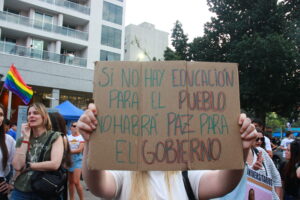 SI NO HAY EDUCACIÓN
PARA EL PUEBLO
NO HABRÁ PAZ PARA
EL GOBIERNO